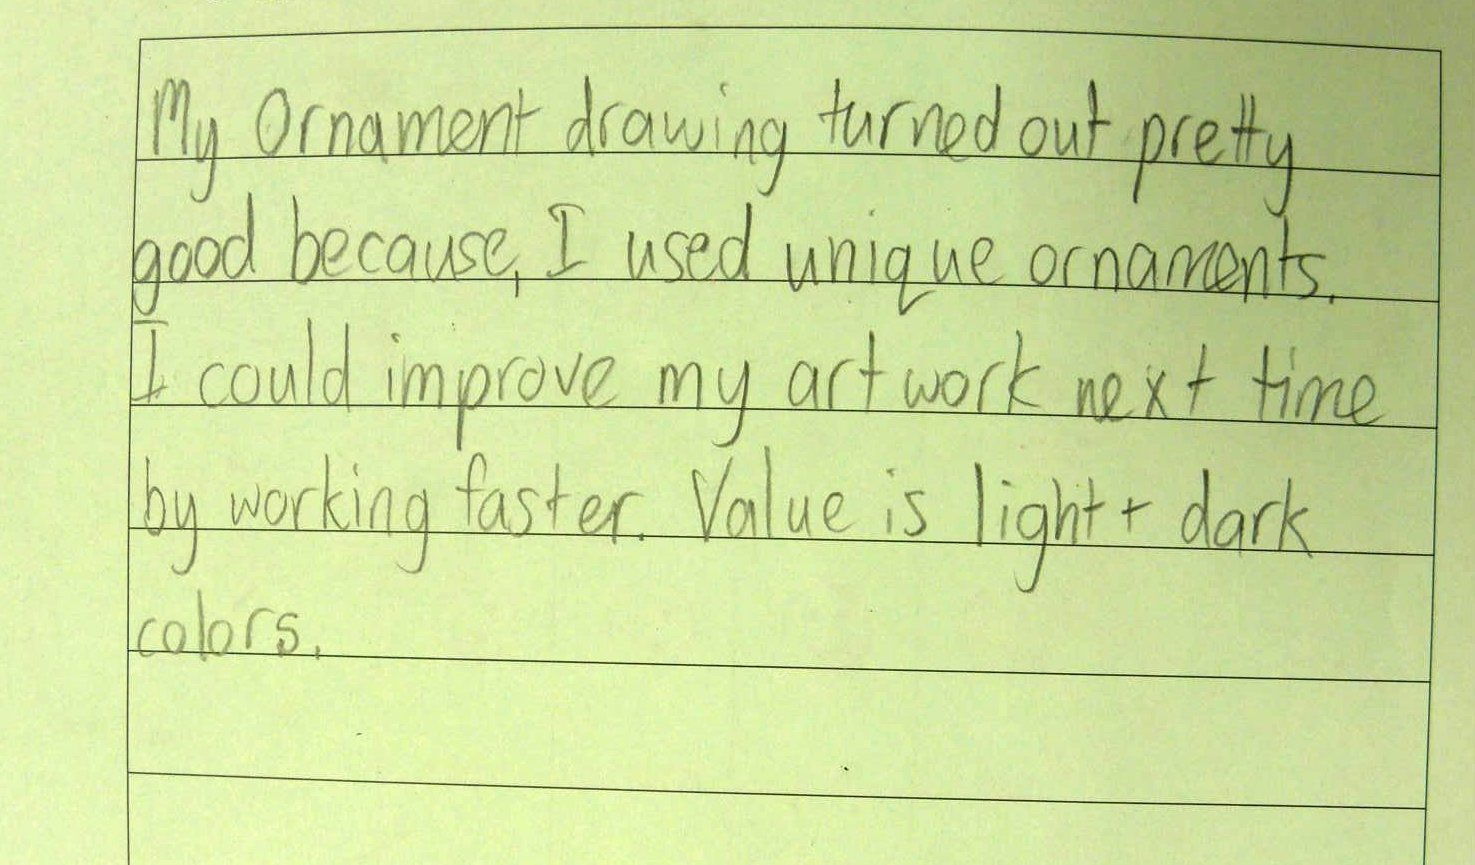 My Ornament drawing turned out pretty
good because, I used unique ornaments.
I could improve my art work next time
by working faster. Value is light + dark
colors.